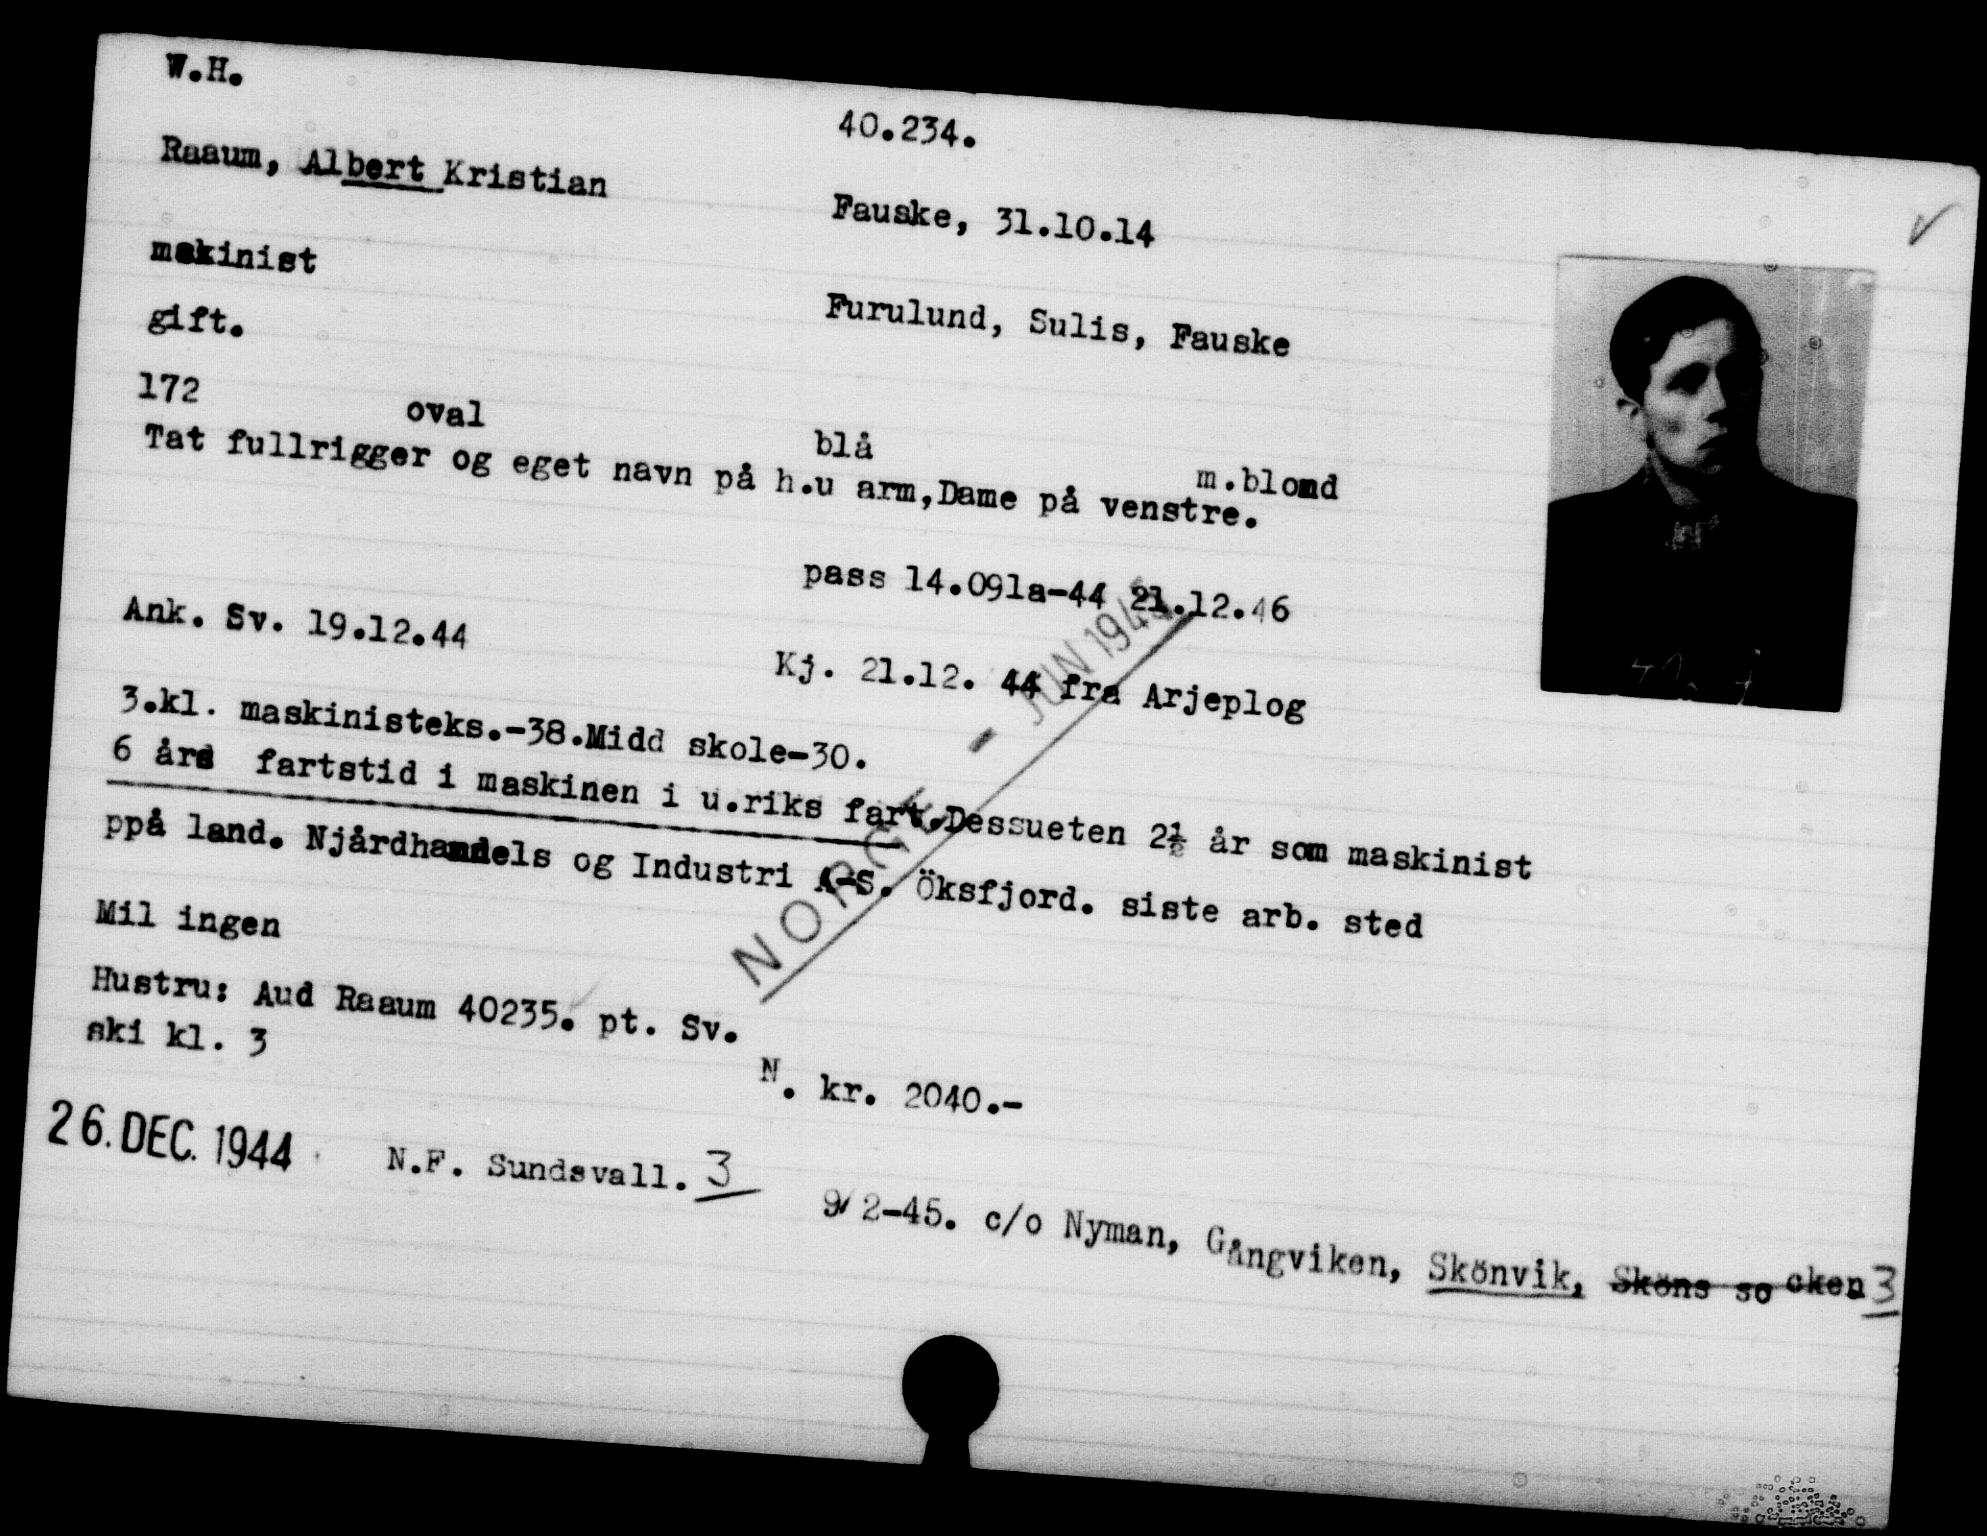 W.H.
40.234.
Raaum, Albert Kristian
Fauske, 31.10.14
maskinist
Furulund, Sulis, Fauske
gift.
172 oval blå m.blond
Tat fullrigger og eget navn på h.u arm,Dame på venstre.
pass 14.091a-44 21.12.46
Ank. Sv. 19.12.44
Kj. 21.12. 44 fra Arjeplog
3.kl. maskinisteks.-38.Midd skole-30.
6 års fartstid i maskinen i u.riks fart.Dessueten 2½ år som maskinist
ppå land. Njårdhandels og Industri A-S. Öksfjord. siste arb. sted
NORGE - JUN 1945
Mil ingen
Hustru: Aud Raaum 40235. pt. Sv.
ski kl. 3
N. kr. 2040.-
26. DEC. 1944
N.F. Sundsvall. 3
9/2-45. c/o Nyman, Gångviken, Skönvik, Sköns socken 3